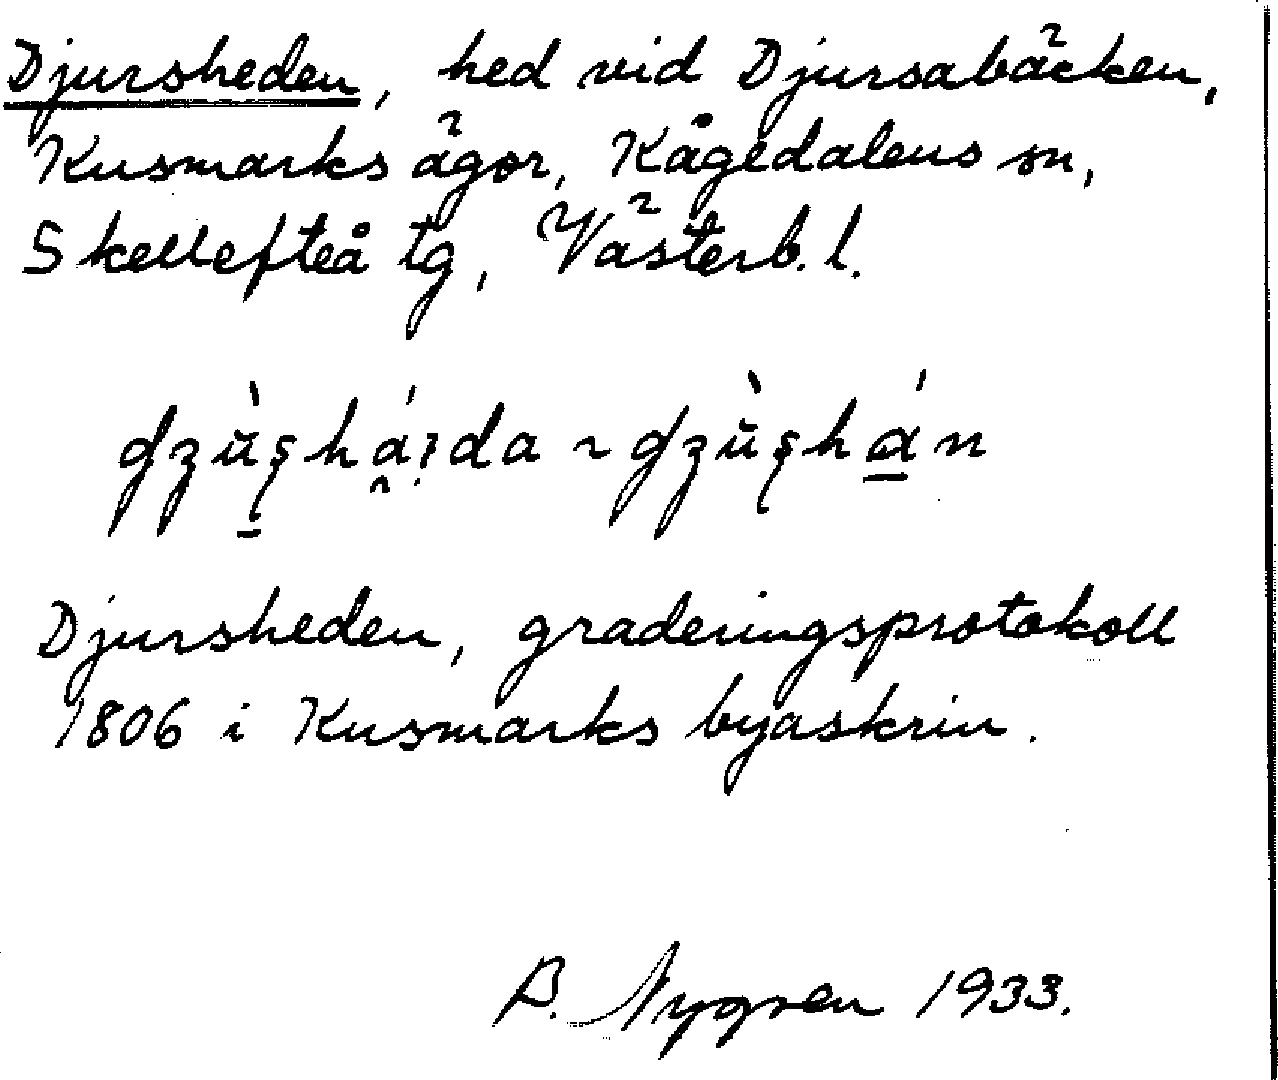 Djursheden, hed vid Djursabäcken,
Kusmarks ägor, Kågedalens sn,
Skellefteå tg, Västerb. l.
Djursheden, graderingsprotokoll
1806 i Kusmarks byaskrin.
B. Nygren 1933.